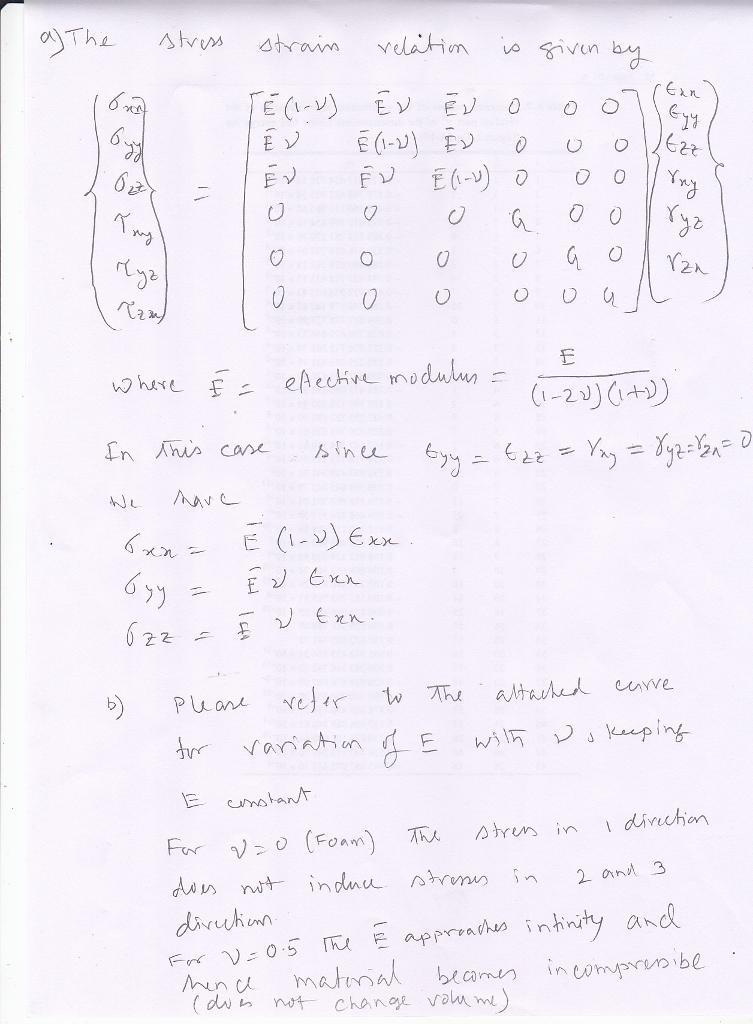 a) The stress strain relation is given by
{σxx σyy σzz τxy τyz τzx} = [Ē(1-ν) Ēν Ēν 0 0 0
Ēν Ē(1-ν) Ēν 0 0 0
Ēν Ēν Ē(1-ν) 0 0 0
0 0 0 G 0 0
0 0 0 0 G 0
0 0 0 0 0 G] {εxx εyy εzz γxy γyz γzx}
where Ē = effective modulus = E / (1-2ν)(1+ν)
In this case since εyy = εzz = γxy = γyz = γzx = 0
we have
σxx = Ē (1-ν) εxx.
σyy = Ē ν εxx
σzz = Ē ν εxx.
b) Please refer to the attached curve
for variation of E with ν, keeping
E constant.
For ν=0 (Foam) the stress in 1 direction
does not induce stresses in 2 and 3
direction.
For ν=0.5 The Ē approaches infinity and
hence material becomes incompressible
(does not change volume)